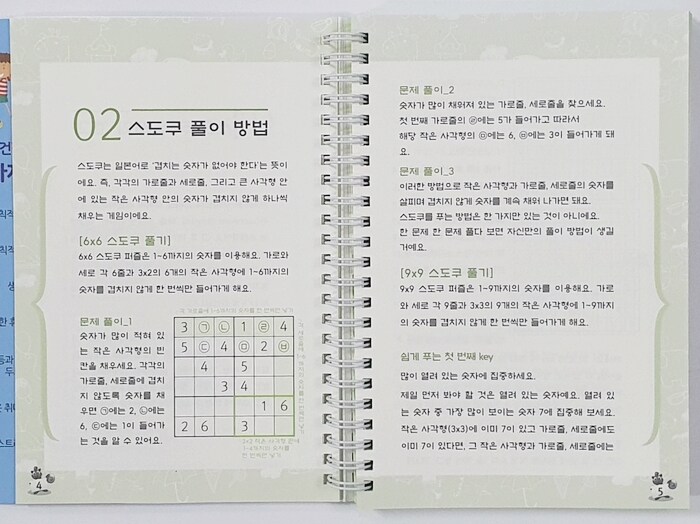 02 스도쿠 풀이 방법
스도쿠는 일본어로 '겹치는 숫자가 없어야 한다'는 뜻이
에요. 즉, 각각의 가로줄과 세로줄, 그리고 큰 사각형 안
에 있는 작은 사각형 안의 숫자가 겹치지 않게 하나씩
채우는 게임이에요.
[6x6 스도쿠 풀기]
6x6 스도쿠 퍼즐은 1~6까지의 숫자를 이용해요. 가로와
세로 각 6줄과 3x2의 6개의 작은 사각형에 1~6까지의
숫자를 겹치지 않게 한 번씩만 들어가게 해요.
문제 풀이_1
숫자가 많이 적혀 있
는 작은 사각형의 빈
칸을 채우세요. 각각의
가로줄, 세로줄에 겹치
지 않도록 숫자를 채
우면 ㉠에는 2, ㉡에는
6, ㉢에는 1이 들어가
는 것을 알 수 있어요.
3 ㉠ ㉡ 1 ㉣ 4
5 ㉢ 4 ㉤ 2 ㉥
4 5
3 4
1 6
2 6 3
4
문제 풀이_2
숫자가 많이 채워져 있는 가로줄, 세로줄을 찾으세요.
첫 번째 가로줄의 ㉣에는 5가 들어가고 따라서
해당 작은 사각형의 ㉤에는 6, ㉥에는 3이 들어가게 돼
요.
문제 풀이_3
이러한 방법으로 작은 사각형과 가로줄, 세로줄의 숫자를
살피며 겹치지 않게 숫자를 계속 채워 나가면 돼요.
스도쿠를 푸는 방법은 한 가지만 있는 것이 아니에요.
한 문제 한 문제 풀다 보면 자신만의 풀이 방법이 생길
거예요.
[9x9 스도쿠 풀기]
9x9 스도쿠 퍼즐은 1~9까지의 숫자를 이용해요. 가로
와 세로 각 9줄과 3x3의 9개의 작은 사각형에 1~9까지
의 숫자를 겹치지 않게 한 번씩만 들어가게 해요.
쉽게 푸는 첫 번째 key
많이 열려 있는 숫자에 집중하세요.
제일 먼저 봐야 할 것은 열려 있는 숫자예요. 열려 있
는 숫자 중 가장 많이 보이는 숫자 7에 집중해 보세요.
작은 사각형(3x3)에 이미 7이 있고 가로줄, 세로줄에도
이미 7이 있다면, 그 작은 사각형과 가로줄, 세로줄에는
5